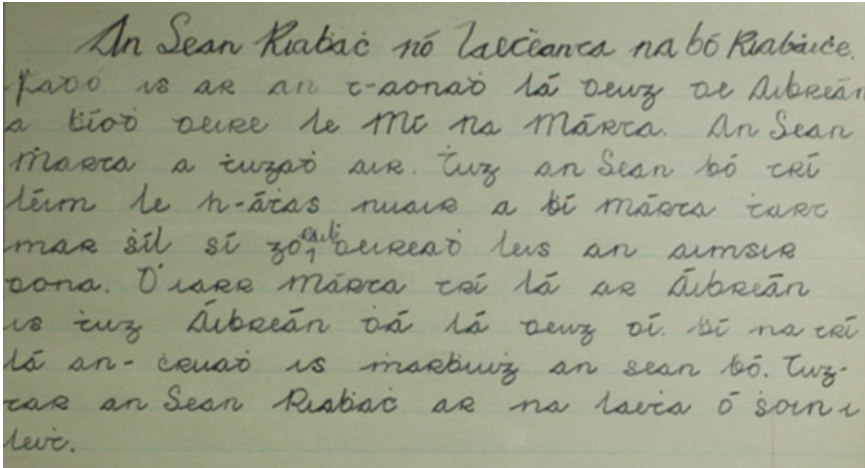 An Sean Riaḃaċ nó Laeṫeanta na bó Riaḃaiċe.
Fadó is ar an t-aonaḋ lá deug de Aibreán
a ḃíoḋ deire le Mí na Márta. An Sean
Ṁarta a ṫugaḋ air. Ṫug an Sean bó trí
léim le h-áṫas nuair a ḃí Márta ṫart
mar ṡíl sí go raiḃ deireaḋ leis an aimsir
dona. D'iarr Márta trí lá ar Áibreán
is ṫug Áibreán ḋá lá deug dí. Ḃí na trí
lá an-ċruaḋ is marḃuiġ an sean ḃó. Tug-
tar an Sean Riaḃaċ ar na laeṫa ó ṡoin i
leiṫ.